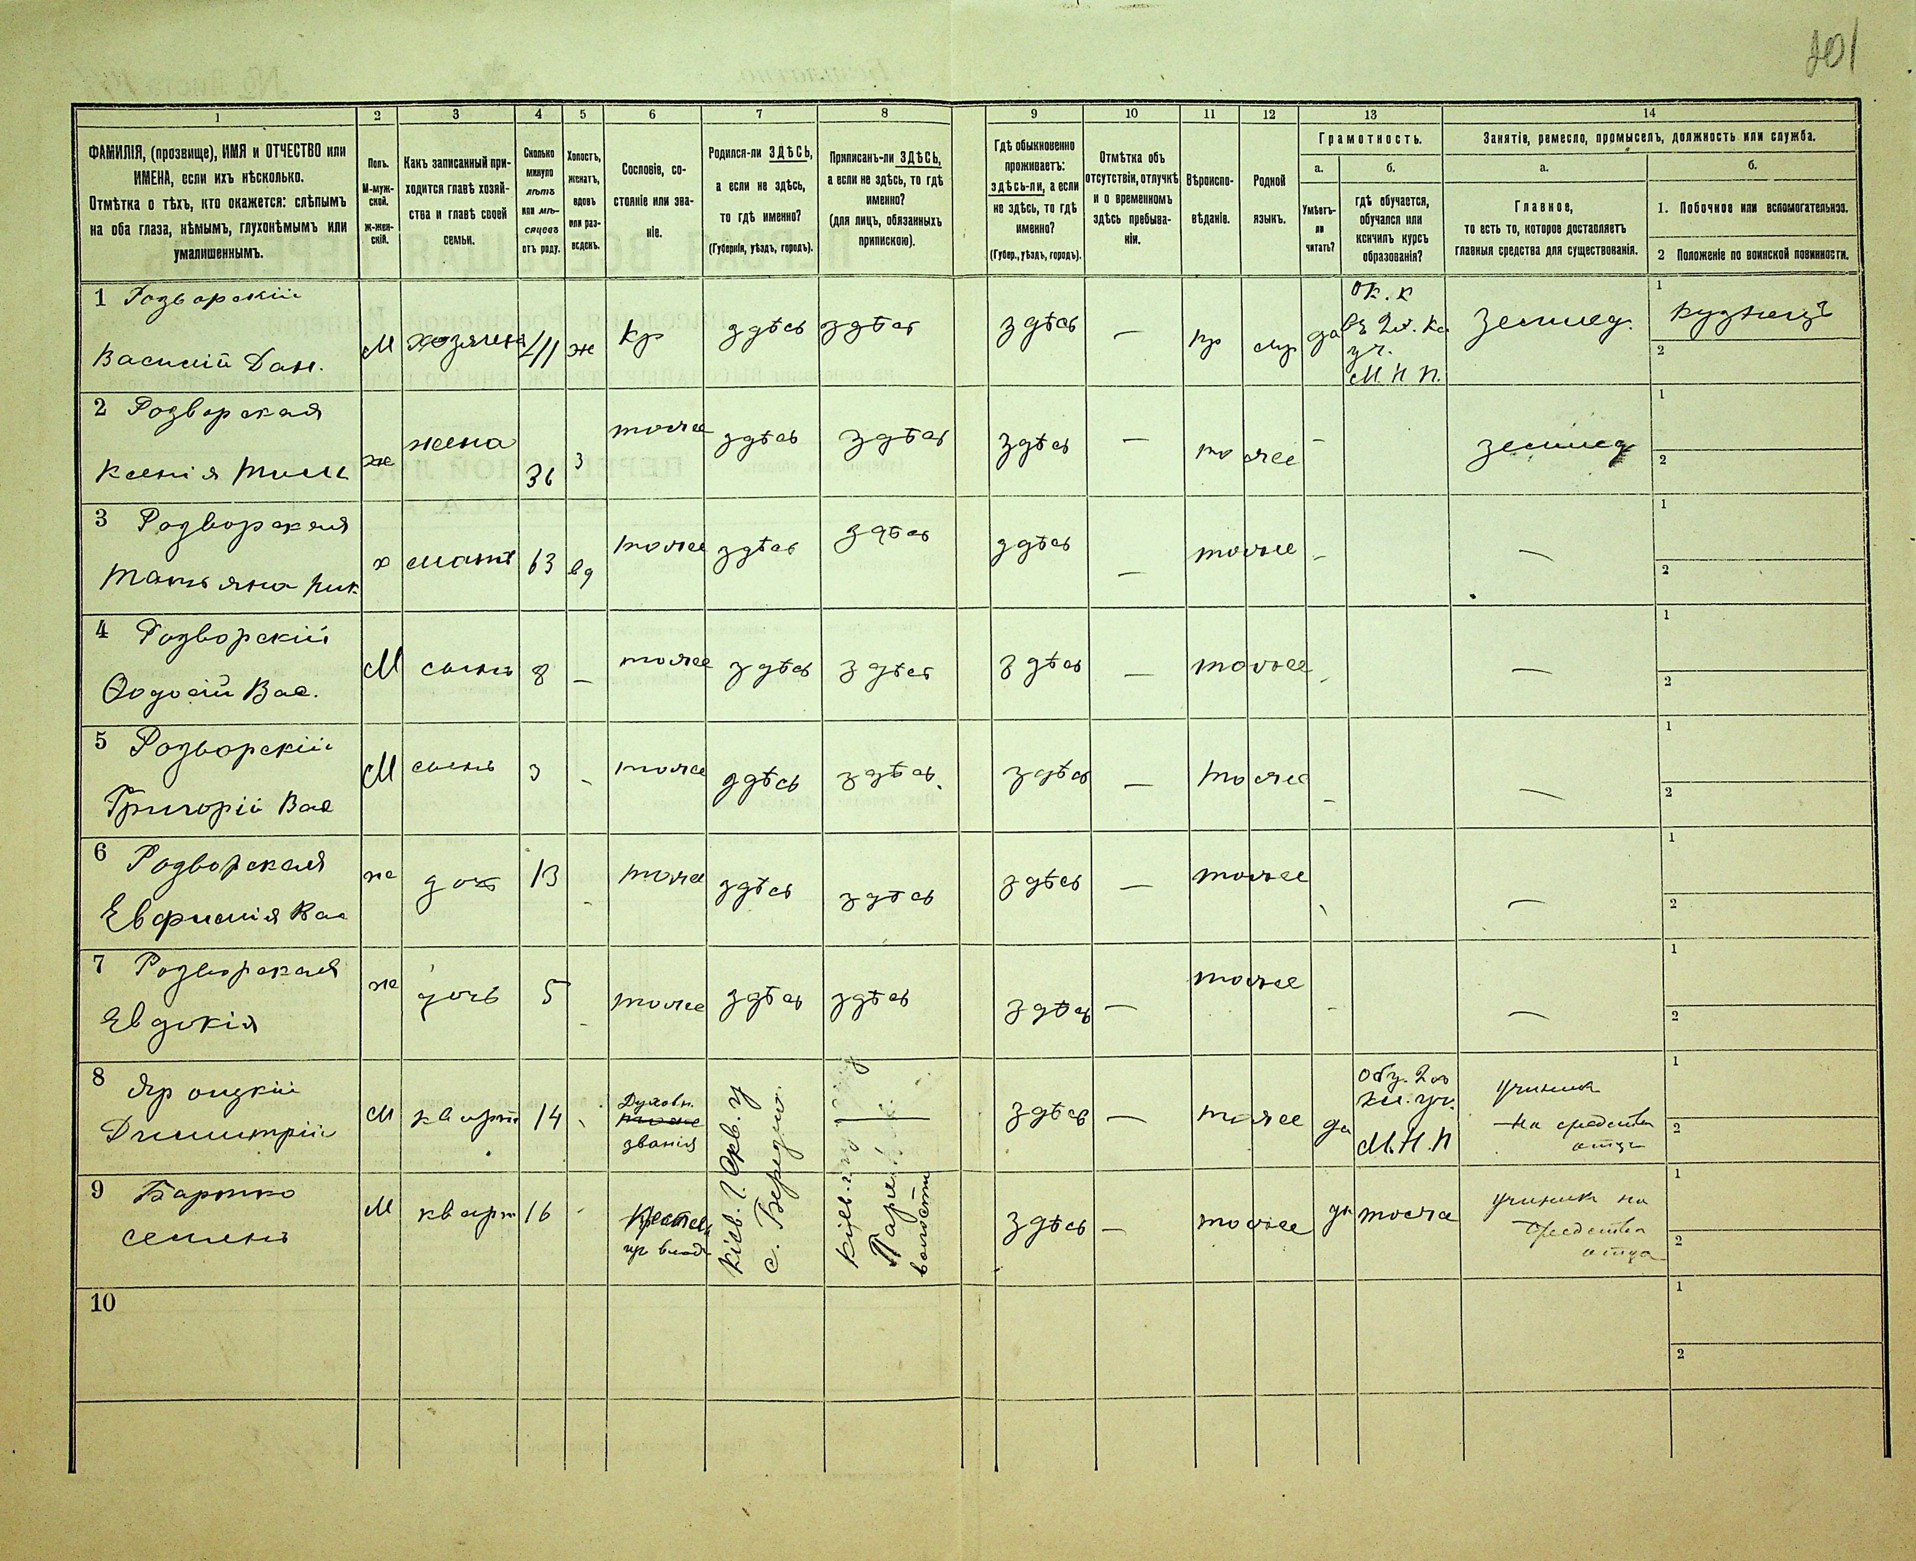 201
1 2 3 4 5 6 7 8 9 10 11 12 13 14
ФАМИЛІЯ, (прозвище), ИМЯ и ОТЧЕСТВО или
ИМЕНА, если ихъ нѣсколько.
Отмѣтка о тѣхъ, кто окажется: слѣпымъ
на оба глаза, нѣмымъ, глухонѣмымъ или
умалишеннымъ.
Полъ.
М-муж-
ской.
ж-жен-
скій.
Какъ записанный при-
ходится главѣ хозяй-
ства и главѣ своей
семьи.
Сколько
минуло
лѣтъ
или мѣ-
сяцевъ
отъ роду.
Холостъ,
женатъ,
вдовъ
или раз-
веденъ.
Сословіе, со-
стояніе или зва-
ніе.
Родился-ли ЗДѢСЬ,
а если не здѣсь,
то гдѣ именно?
(Губернія, уѣздъ, городъ).
Приписанъ-ли ЗДѢСЬ,
а если не здѣсь, то гдѣ
именно?
(для лицъ, обязанныхъ
припискою).
Гдѣ обыкновенно
проживаетъ:
здѣсь-ли, а если
не здѣсь, то гдѣ
именно?
(Губер., уѣздъ, городъ).
Отмѣтка объ
отсутствіи, отлучкѣ
и о временномъ
здѣсь пребыва-
ніи.
Вѣроиспо-
вѣданіе.
Родной
языкъ.
Грамотность.
а. б.
Умѣетъ-
ли
читать?
гдѣ обучается,
обучался или
кончилъ курсъ
образованія?
Занятіе, ремесло, промыселъ, должность или служба.
а. б.
Главное,
то есть то, которое доставляетъ
главныя средства для существованія.
1. Побочное или вспомогательное.
2 Положеніе по воинской повинности.
1 Розворскій
Василій Дан.
М хозяинъ 411 ж кр здѣсь здѣсь здѣсь — пр мр да
ок. к
уч.
М. Н. П.
землед.
1 кузнецъ
2
2 Розворская
Ксенія
ж жена 36 з тоже здѣсь здѣсь здѣсь — тоже — землед
1
2
3 Розворская
Татьяна Ник
ж мать 63 вд тоже здѣсь здѣсь здѣсь — тоже — —
1
2
4 Розворскій
Ѳодосій Вас.
М сынъ 8 — тоже здѣсь здѣсь здѣсь — тоже — —
1
2
5 Розворскій
Григорій Вас
М сынъ 3 — тоже здѣсь здѣсь. здѣсь — тоже — —
1
2
6 Розворская
Евфимія Вас
ж дочь 13 — тоже здѣсь здѣсь здѣсь — тоже — —
1
2
7 Розворская
Евдокія
ж дочь 5 — тоже здѣсь здѣсь здѣсь — тоже — —
1
2
8
Димитрій
М кварт 14 -
Духовн.
тоже
званія
Кіев. г. Скв. у
— здѣсь — тоже да
обу. 2хо
кл. уч.
М. Н. П
ученикъ
на средства
отца
1
2
9 Бартко
Семенъ
М кварт 16 -
с.
Кіев. г.
волости
здѣсь — тоже да тоже
ученикъ на
средства
отца
1
2
10
1
2